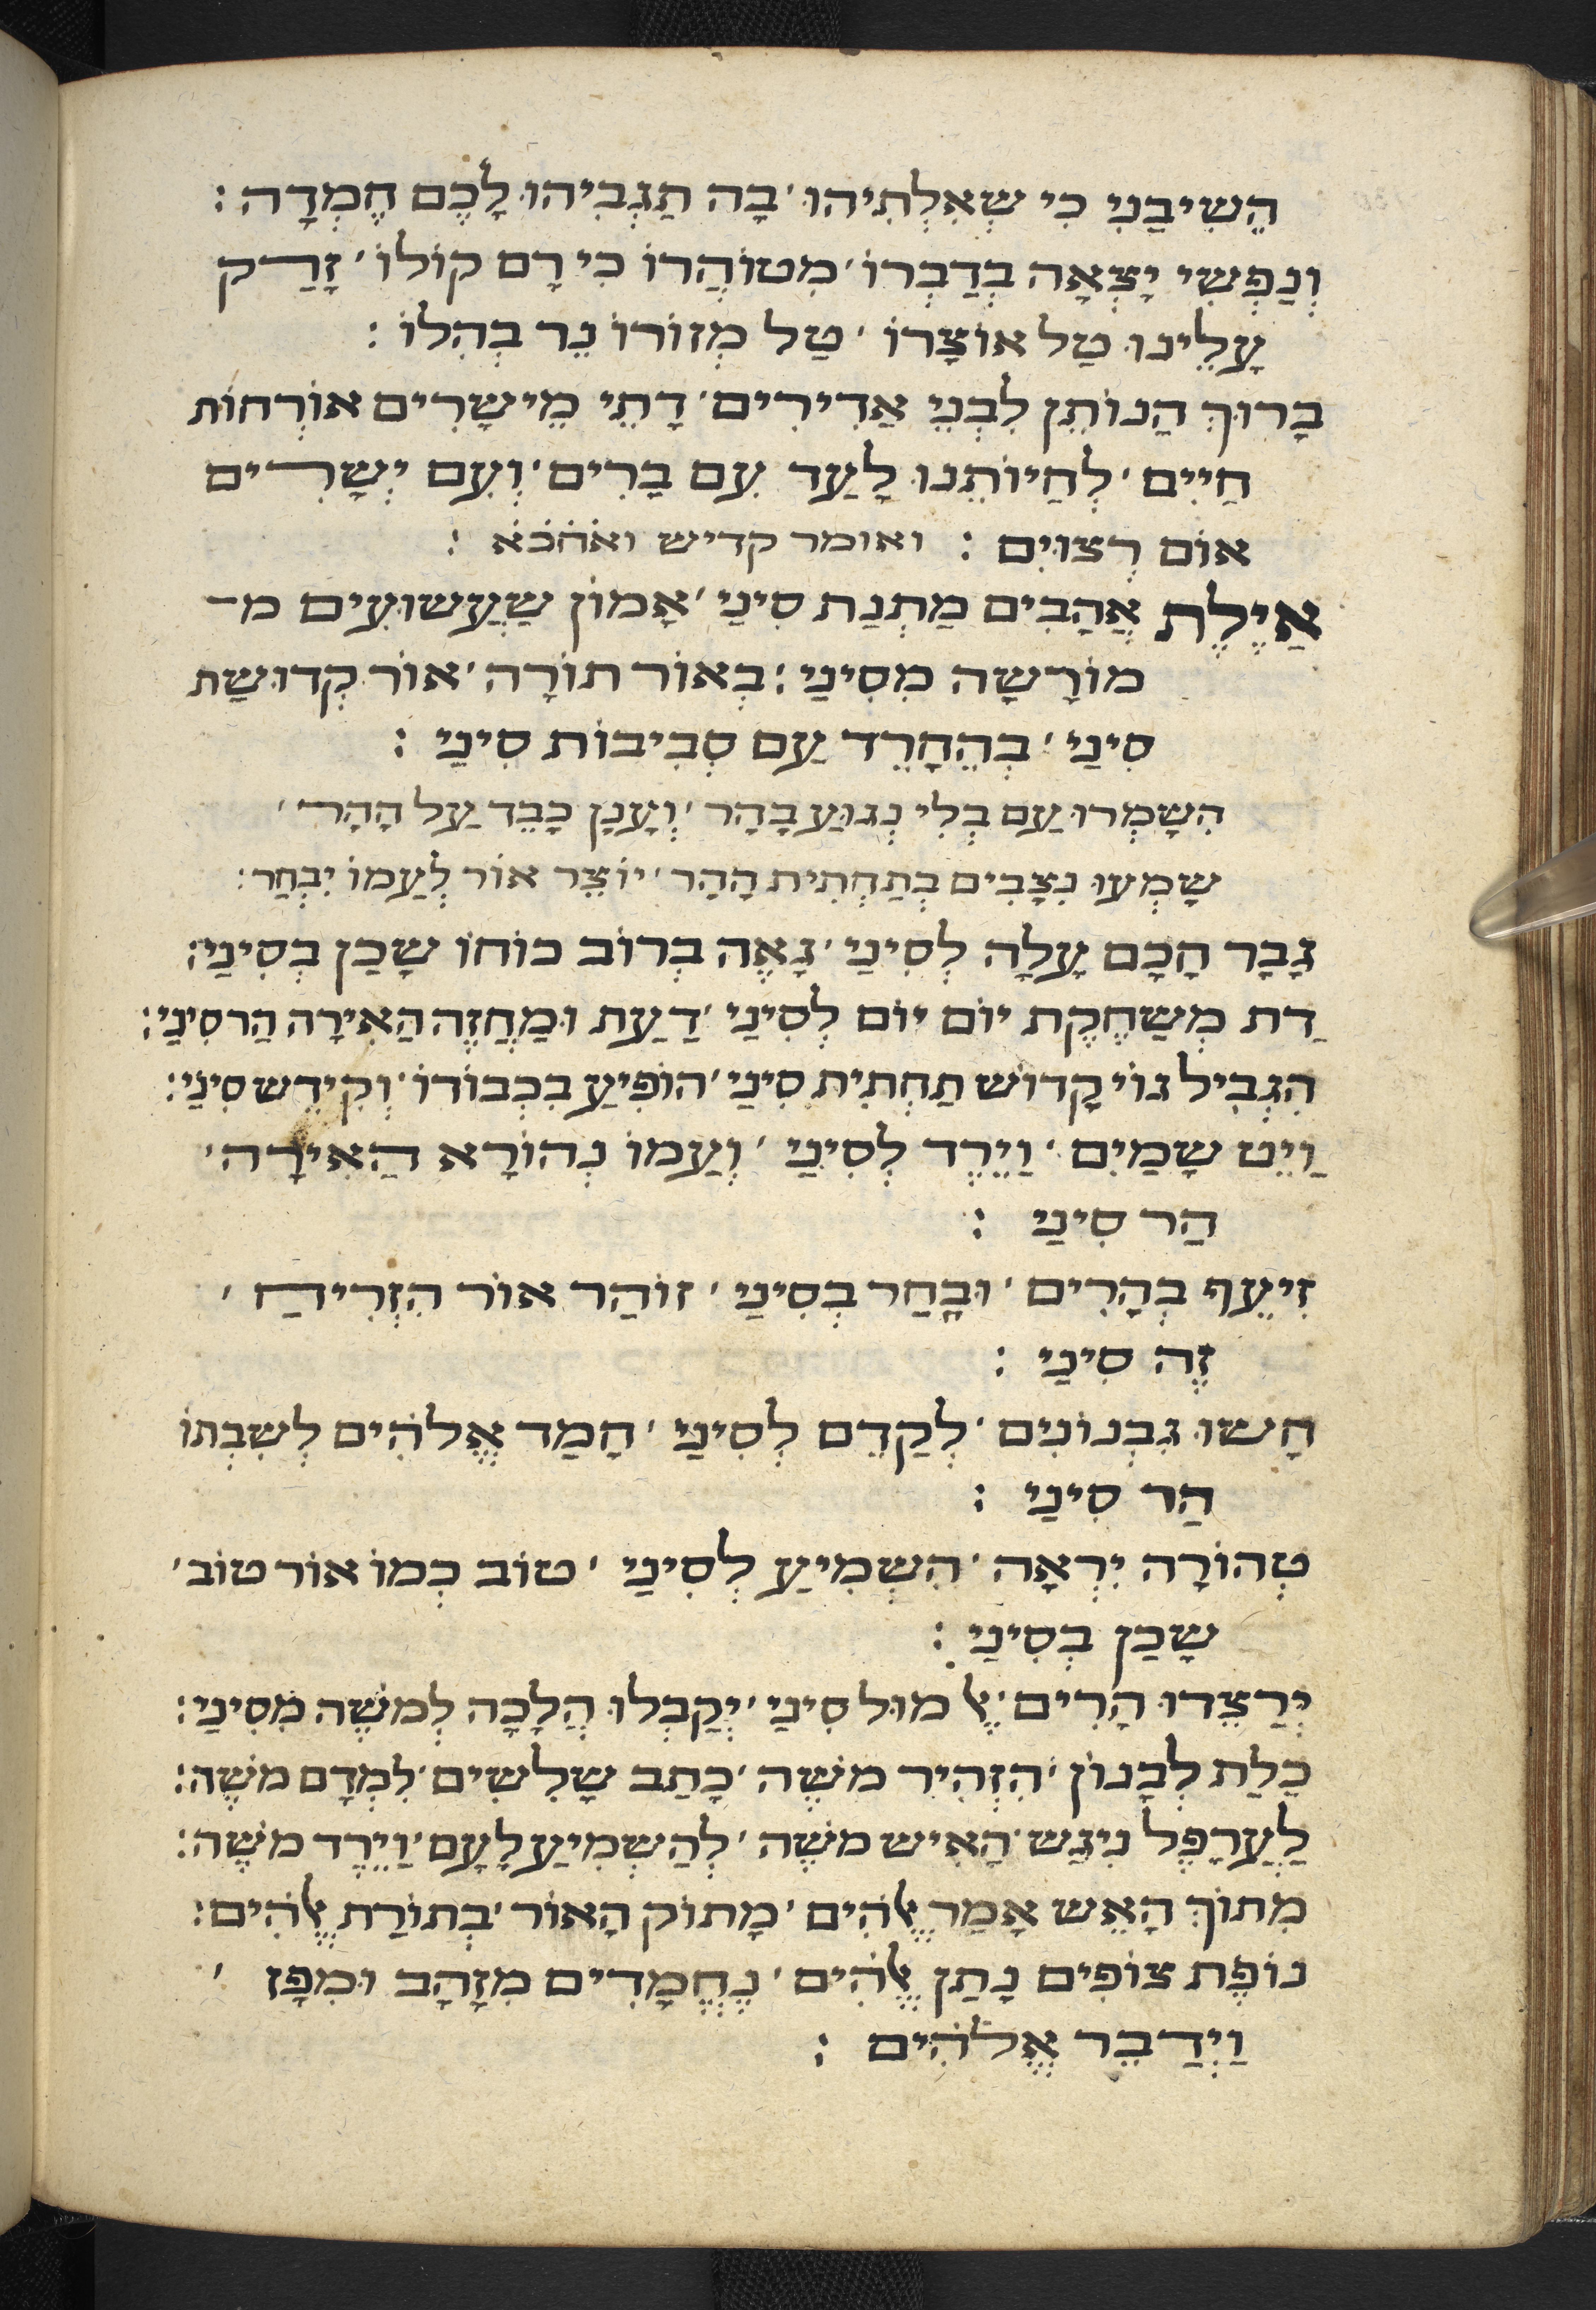 הֱשִיבַנִי כִי שְאִלְתִיהוּ׳ בָה תַגְבִיהוּ לָכֶם חֶמְדָה׃
וְנַפְשִי יָצְאָה בְדַבְרוֹ׳ מִטוֹהֲרוֹ כִי רָם קוֹלוֹ׳ זָרַק
עָלֵינוּ טַל אוֹצָרוֹ׳ טַל מְזוֹרוֹ נֵר בְהִלוֹ׃
בָרוּךְ הַנוֹתֵן לִבְנֵי אַדִירִים׳ דָתֵי מֵישָרִים אוֹרְחוֹת
חַיִים׳ לְחַיוֹתֵנוּ לָעַד עִם בָרִים׳ וְעִם יְשָרִים
אוֹם רְצוּיִם׃ ואומר קדיש ואׄחׄכׄאׄ׃
אַיֶלֶת אֲהָבִים מַתְנַת סִינַי׳ אָמוֹן שַעֲשוּעִים מ
מוֹרָשָה מִסִינַי׃ בְאוֹר תוֹרָה׳ אוֹר קְדוּשַת
סִינַי׳ בְהֵחָרֵד עַם סְבִיבוֹת סִינַי׃
הִשָמְרוּ עַם בְלִי נְגוֹעַ בָהָר׳ וְעָנָן כָבֵד עַל הָהָר׳
שָמְעוּ נִצָבִים בְתַחְתִית הָהָר׳ יוֹצֵר אוֹר לְעַמוֹ יִבְחַר׃
גָבָר חָכָם עָלָה לְסִינַי׳ גָאֶה בְרוֹב כוֹחוֹ שָכַן בְסִינַי׃
דַת מְשַחֶקֶת יוֹם יוֹם לְסִינַי׳ דַעַת וּמַחֲזֶה הַאִירָה הַר סִינַי׃
הִגְבִיל גוֹי קָדוֹש תַחְתִית סִינַי׳ הוֹפִיעַ בִכְבוֹדוֹ׳ וְקִידֵש סִינַי׃
וַיֵט שָמַיִם׳ וַיֵרֶד לְסִינַי׳ וְעַמוֹ נְהוֹרָא הַאִירָה׳
הַר סִינַי׃
זִיעֵף בְהָרִים׳ וּבָחַר בְסִינַי׳ זוֹהַר אוֹר הִזְרִיחַ׳
זֶה סִינַי׃
חָשוּ גִבְנוֹנִים׳ לְקַדֵם לְסִינַי׳ חָמַד אֱלֹהִים לְשִבְתוֹ
הַר סִינַי׃
טְהוֹרָה יִרְאָה׳ הִשְמִיעַ לְסִינַי׳ טוֹב כְמוֹ אוֹר טוֹב׳
שָכַן בְסִינַי׃
יְרַצֵדוּ הָרִים׳ אֶל מוּל סִינַי׳ יְקַבְלוּ הֲלָכָה לְמשֶה מִסִינַי׃
כַלַת לְבָנוֹן׳ הִזְהִיר משֶה׳ כָתַב שָלִשִים׳ לִמְדָם משֶה׃
לַעֲרָפֶל נִיגַש׳ הָאִיש משֶה׳ לְהַשְמִיעַ לָעָם׳ וַיֵרֶד משֶה׃
מִתוֹךְ הָאֵש אָמַר אֱלֹהִים׳ מָתוֹק הָאוֹר׳ בְתוֹרַת אֱלֹהִים׃
נוֹפֶת צוֹפִים נָתַן אֱלֹהִים׳ נֶחֱמָדִים מִזָהָב וּמִפָז׳
וַיְדַבֵר אֱלֹהִים׃